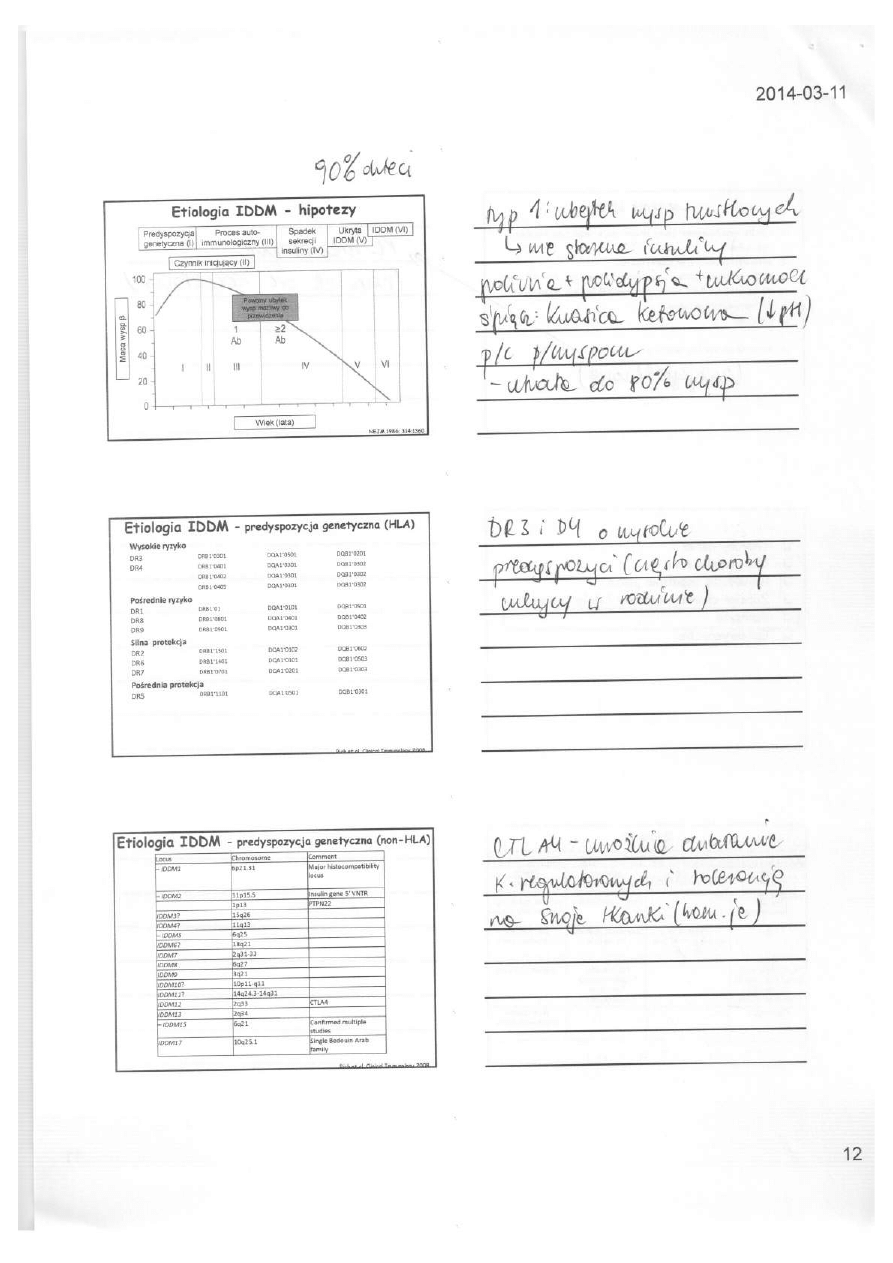 2014-03-11
90% dzieci
Etiologia IDDM - hipotezy
Predyspozycja genetyczna (I)
Proces auto-immunologiczny (III)
Spadek sekrecji insuliny (IV)
Ukryta IDDM (V)
IDDM (VI)
Czynnik inicjujący (II)
100
80
60
40
20
0
Masa wysp β
Poważny ubytek
wysp możliwy do
przewidzenia
1 ≥2
Ab Ab
I II III IV V VI
Wiek (lata)
NEJM 1986; 314:1360
typ 1: ubytek wysp trzustkowych
↳ nie stosuje insuliny
poliuria + polidypsja + cukromocz
śpiączka: kwasica ketonowa (↓pH)
p/c p/wyspom
- utrata do 80% wysp
Etiologia IDDM - predyspozycja genetyczna (HLA)
Wysokie ryzyko
DR3 DRB1*0301 DQA1*0501 DQB1*0201
DR4 DRB1*0401 DQA1*0301 DQB1*0302
DRB1*0402 DQA1*0301 DQB1*0302
DRB1*0405 DQA1*0301 DQB1*0302
Pośrednie ryzyko
DR1 DRB1*01 DQA1*0101 DQB1*0501
DR8 DRB1*0801 DQA1*0401 DQB1*0402
DR9 DRB1*0901 DQA1*0301 DQB1*0303
Silna protekcja
DR2 DRB1*1501 DQA1*0102 DQB1*0602
DR6 DRB1*1401 DQA1*0101 DQB1*0503
DR7 DRB1*0701 DQA1*0201 DQB1*0303
Pośrednia protekcja
DR5 DRB1*1101 DQA1*0501 DQB1*0301
et al. Clinical Immunology 2008
DR3 i D4 o wysokie
predyspozycj (często choroby
w rodzinie)
Etiologia IDDM - predyspozycja genetyczna (non-HLA)
Locus Chromosome Comment
– IDDM1 6p21.31 Major histocompatibility locus
– IDDM2 11p15.5 Insulin gene 5' VNTR
1p13 PTPN22
IDDM3? 15q26
IDDM4? 11q13
– IDDM5 6q25
IDDM6? 18q21
IDDM7 2q31-33
IDDM8 6q27
IDDM9 3q21
IDDM10? 10p11-q11
IDDM11? 14q24.3-14q31
IDDM12 2q33 CTLA4
IDDM13 2q34
– IDDM15 6q21 Confirmed multiple studies
IDDM17 10q25.1 Single Bedouin Arab family
et al. Clinical Immunology 2008
CTLA4 - umożliwia działanie
k. regulatorowych i tolerancję
na swoje tkanki (ham. je)
12